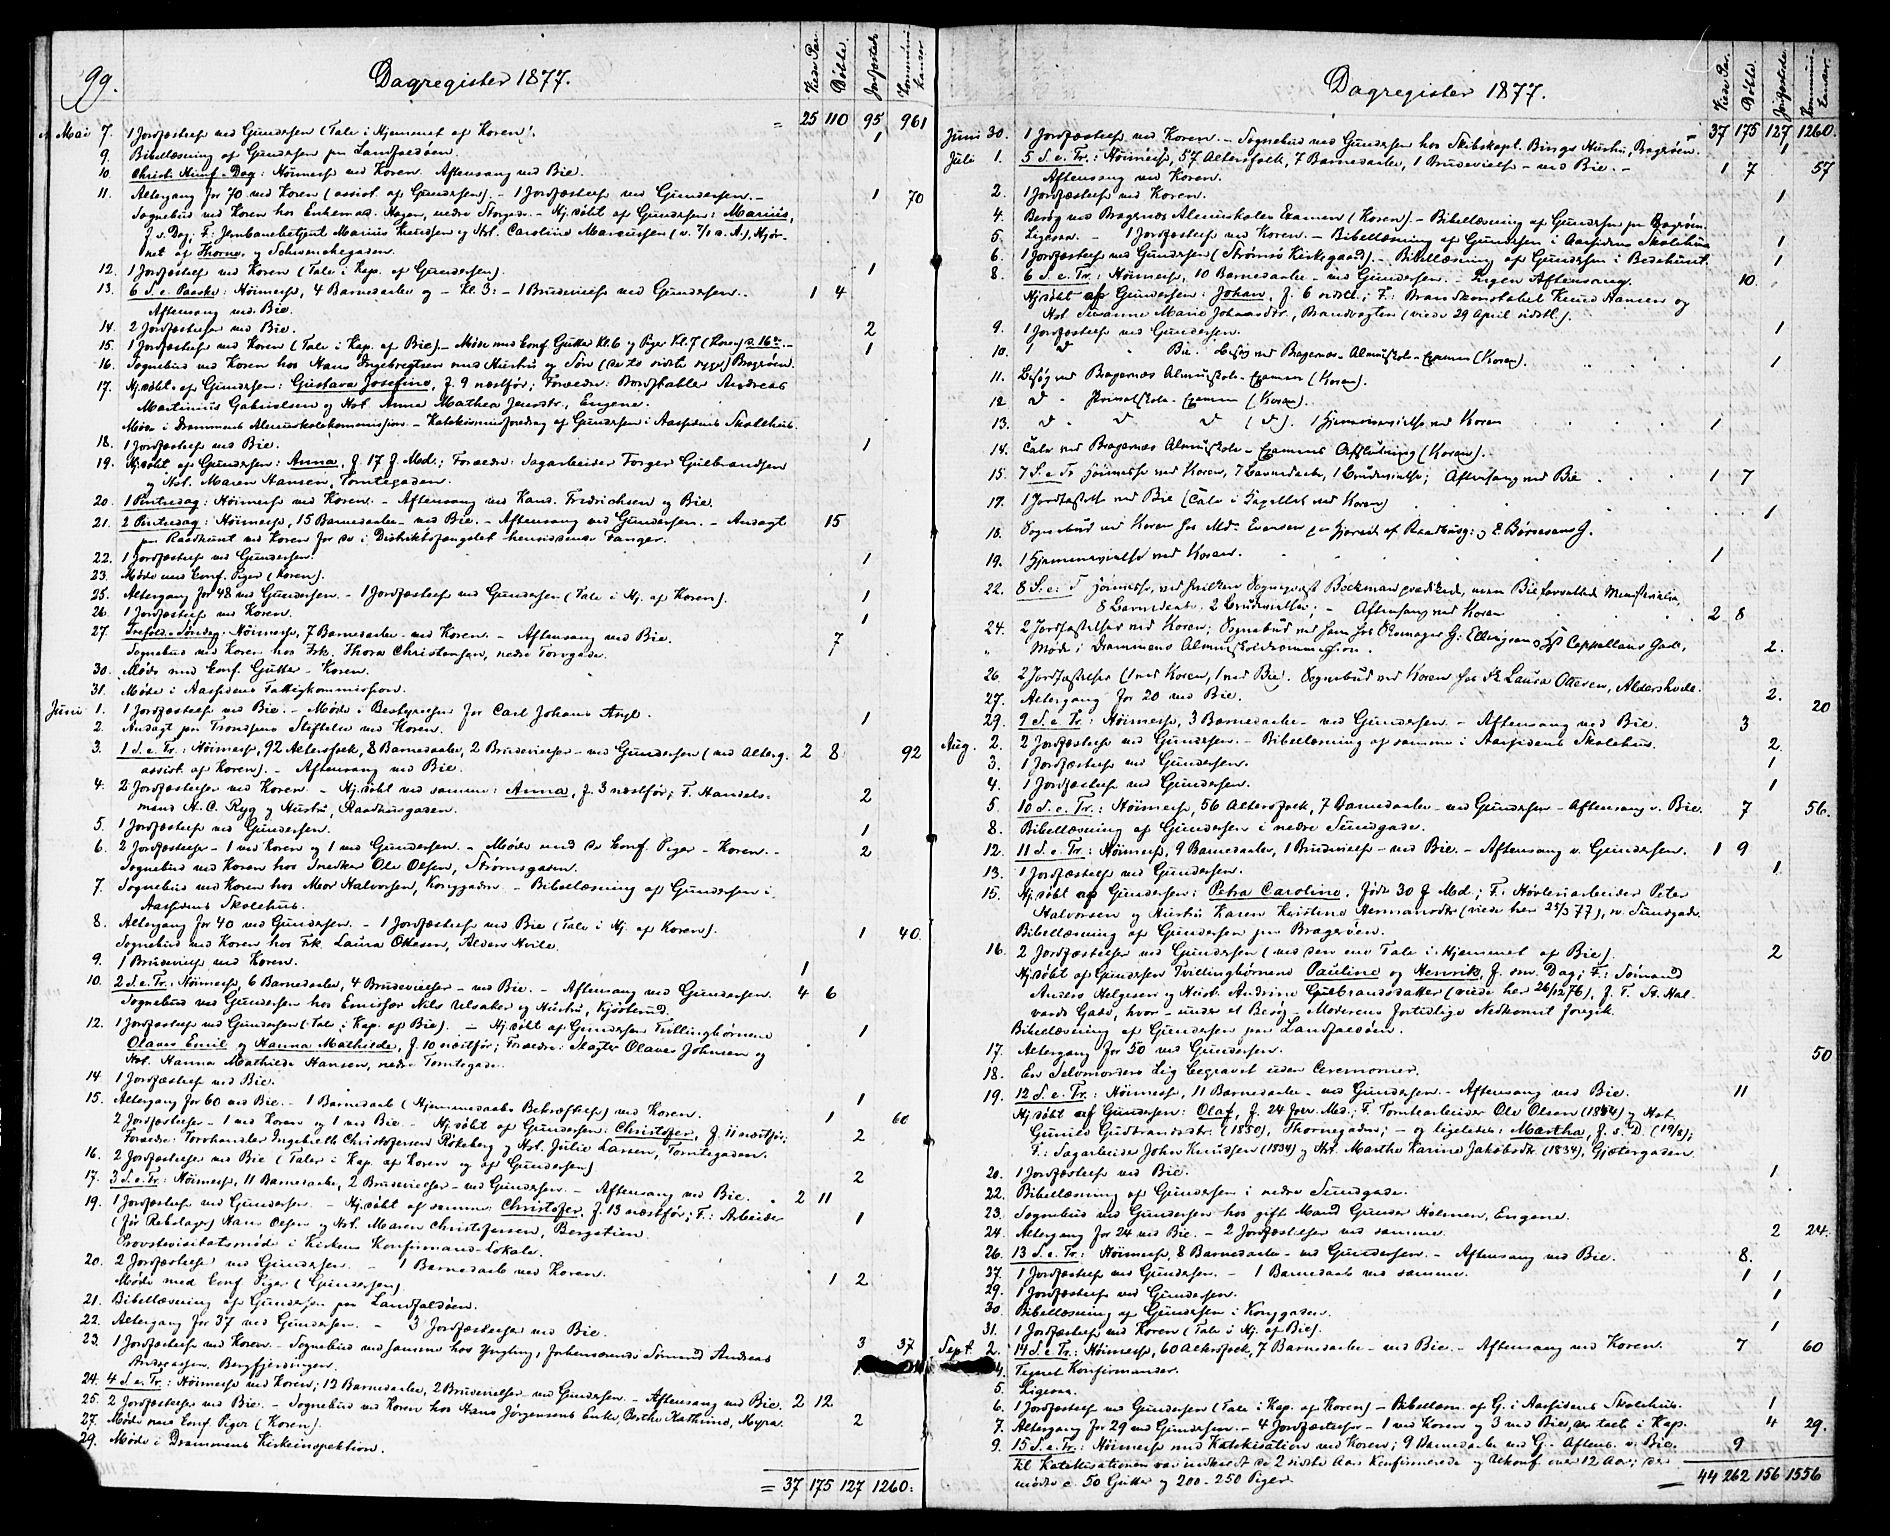 99.
Dagregister 1877.
Viede Par. Døbte. Jordfæstede. Kommunikanter.
25 110 95 961
Mai 7. 1 Jordfæstelse ved Gundersen (Tale i Hjemmet af Koren). 1
9. Bibellæsning af Gundersen paa Landfaldøen.
10. Christi Himf. Dag: Høimesse ved Koren. Aftensang ved Bie.
11. Altergang for 70 ved Koren (assist. af Gundersen). - 1 Jordfæstelse ved Gundersen. - 1 70
Sognebud ved Koren hos Enkemad. Hagen, nedre Storgade. - Hj.døbt af Gundersen: Marius,
f. s. Dag; F: Jernbanebetjent Marius Knudsen og Hst. Caroline Marcussen
12. 1 Jordfæstelse ved Koren (Tale i Kap. af Gundersen). 1
13. 6 S. e. Paaske: Høimesse, 4 Barnedaabe og - Kl. 3: - 1 Brudevielse ved Gundersen. 1 4
Aftensang ved Bie.
14. 2 Jordfæstelser ved Bie. 2
15. 1 Jordfæstelse ved Koren (Tale i Kap. af Bie) - Møde med Conf. Gutter Kl. 6 og Piger Kl. 7 1
16. Sognebud ved Koren hos Hans Ingebregtsen med Hustru og Søn Bragerøen.
17. Hj.døbt af Gundersen: Gustava Josefine, f. 9 næstfør; Forældre: Bordstabler Andreas
Martinius Gabrielsen og Hst. Anna Mathea Jensdtr., Engene.
Møde i Drammens Almueskolekommission. - Katekismusforedrag af Gundersen i Aassidens Skolehus.
18. 1 Jordfæstelse ved Bie. 1
19. Hj.døbt af Gundersen: Anna, f. 17 f. Md.; Forældre: Sagarbeider Torger Gulbrandsen
og Hst. Maren Hansen, Tomtegaden.
20. 1 Pintsedag: Høimesse ved Koren. - Aftensang ved Kand. Fredrichsen og Bie.
21. 2 Pintsedag: Høimesse, 15 Barnedaabe - ved Bie. - Aftensang ved Gundersen. - Andagt 15
paa Raadhuset ved Koren for de i Distriktsfængslet hensiddende Fanger.
22. 1 Jordfæstelse ved Gundersen. 1
23. Møde med Conf. Piger (Koren).
25. Altergang for 48 ved Gundersen. - 1 Jordfæstelse ved Gundersen (Tale i Hj. af Koren). 1
26. 1 Jordfæstelse ved Koren. 1
27. Trefold. Søndag. Høimesse, 7 Barnedaabe - ved Koren. - Aftensang ved Bie. 7
Sognebud ved Koren hos Frk. Thora Christensen, nedre Torvgade.
30. Møde med Conf. Gutter - Koren.
31. Møde i Aassidens Fattigkommission.
Juni 1. 1 Jordfæstelse ved Bie. - Møde i Bestyrelsen for Carl Johans Asyl. 1
2. Andagt paa Trondsens Stiftelse ved Koren.
3. 1 S. e. Tr.: Høimesse, 92 Altersfolk, 8 Barnedaabe, 2 Brudevielser - ved Gundersen (ved Alterg. 2 8 92
assist. af Koren). - Aftensang ved Bie.
4. 2 Jordfæstelser ved Koren. - Hj.døbt ved samme: Anna, f. 3 næstfør; F. Handels- 2
mand A. C. Ryg og Hustru, Raadhusgaden.
5. 1 Jordfæstelse ved Gundersen. 1
6. 2 Jordfæstelser - 1 ved Koren og 1 ved Gundersen. - Møde med de Conf. Piger - Koren. - 2
Sognebud ved Koren hos Snedker Ole Olsen, Strømsgaden.
7. Sognebud ved Koren hos Mor Halvorsen, Konggaden. - Bibellæsning af Gundersen i
Aassidens Skolehus.
8. Altergang for 40 ved Gundersen. - 1 Jordfæstelse ved Bie (Tale i Hj. af Koren). 1 40.
Sognebud ved Koren hos Frk. Laura Ottesen, Alders Hvile.
9. 1 Brudevielse ved Koren. 1
10. 2 S. e. Tr.: Høimesse, 6 Barnedaabe, 4 Brudevielser - ved Bie. - Aftensang ved Gundersen. 4 6
Sognebud ved Gundersen hos Emissær Nils Ulsaker og Hustru, Kjøsterud.
12. 1 Jordfæstelse ved Gundersen (Tale i Kap. af Bie). - Hj.døbt af Gundersen Tvillingbørnene 1
Olaves Emil og Hanna Mathilde, f. 10 næstfør; Forældre: Slagter Olaves Johnsen og
Hst. Hanna Mathilde Hansen, nedre Tomtegade.
14. 1 Jordfæstelse ved Bie. 1
15. Altergang for 60 ved Bie. - 1 Barnedaab (Hjemmedaabs Bekræftelse) ved Koren. 1 60
2 Jordfæstelser - 1 ved Koren og 1 ved Bie. - Hj.døbt af Gundersen: Christofer, f. 11 næstfør; 2
Forældre: Torvhandler Ingebreth Christofersen Røkeberg og Hst. Julie Larsen, Tomtegaden.
16. 2 Jordfæstelser ved Bie (Taler i Kap. af Koren og af Gundersen) 2
17. 3 S. e. Tr.: Høimesse, 11 Barnedaabe, 2 Brudevielser - ved Gundersen. - Aftensang ved Bie. 2 11
19. 1 Jordfæstelse ved Gundersen. - Hj.døbt af samme: Christofer, f. 13 næstfør; F.: Arbeider 1
(før Rebslager) Hans Olsen og Hst. Maren Christofersen, Bergstien.
Provstevisitatsmøde i Kirkens Konfirmand-Lokale.
20. 2 Jordfæstelser ved Gundersen. - 1 Barnedaab ved Koren. 1 2
Møde med Conf. Piger (Gundersen)
21. Bibellæsning af Gundersen paa Landfaldøen.
22. Altergang for 37 ved Gundersen. - 3 Jordfæstelser ved Bie. 3 37
23. 1 Jordfæstelse ved Koren. - Sognebud ved samme hos Yngling, forhenværende Sømand Andreas 1
Andreassen, Bergfjerdingen.
24. 4 S. e. Tr.: Høimesse ved Koren; 12 Barnedaabe, 2 Brudevielser ved Gundersen. - Aftensang ved Bie. 2 12
25. 2 Jordfæstelser ved Bie. - Sognebud ved Koren hos Hans Jørgensens Enke, Berthe Kathrine, Myra. 2
27. Møde med Conf. Piger (Koren).
29. Møde i Drammens Kirkeinspektion.
= 37 175 127 1260.
Dagregister 1877.
Viede Par. Døbte. Jordfæstede. Kommunikanter.
37 175 127 1260.
Juni 30. 1 Jordfæstelse ved Koren. - Sognebud ved Gundersen hos Skibskapt. Bings Hustru, Bragerøen. 1
Juli 1. 5 S. e. Tr.: Høimesse, 57 Altersfolk, 7 Barnedaabe, 1 Brudevielse - ved Bie. - 1 7 57
Aftensang ved Koren.
2. 1 Jordfæstelse ved Koren. 1
4. Besøg ved Bragernæs Almueskoles Examen (Koren). - Bibellæsning af Gundersen paa Bragerøen.
5. Ligesaa. - 1 Jordfæstelse ved Koren. - Bibellæsning af Gundersen i Aassidens Skolehus 1
6. 1 Jordfæstelse ved Gundersen (Strømsø Kirkegaard). - Bibellæsning af Gundersen i Bedehuset. 1
8. 6 S. e. Tr.: Høimesse, 10 Barnedaabe - ved Gundersen. - Ingen Aftensang. 10.
Hj.døbt af Gundersen: Johan, f. 6 sidstl.; F.: Brandkonstabel Knud Hansen og
Hst. Susanne Marie Johansdtr., Brandvagten (viede 29 April sidstl.).
9. 1 Jordfæstelse ved Gundersen. 1
10. 1 d " Bie. Besøg ved Bragernæs Almueskole-Examen (Koren). 1
11. Besøg ved Bragernæs Almueskole-Examen (Koren).
12 d - Privatskole-Examen (Koren).
13. d - d d (d). 1 Hjemmevielse ved Koren 1
14. Tale ved Bragernæs Almueskole-Examens Afslutning (Koren).
15. 7 S. e. Tr. Høimesse ved Koren, 7 Barnedaabe, 1 Brudevielse; Aftensang ved Bie 1 7
17. 1 Jordfæstelse ved Bie (Tale i Kapellet ved Koren) 1
18. Sognebud ved Koren hos Md. Evensen
19. 1 Hjemmevielse ved Koren. 1
22. 8 S. e. T Høimesse, ved hvilken Sognepræst Bockman prædikede, men Bie forrettede Ministerialia,
8 Barnedaabe, 2 Brudevielser; - Aftensang ved Koren 2 8
24. 2 Jordfæstelser ved Koren; Sognebud ved ham hos Skomager G. Ellingsen Cappellens Gade,
" Møde i Drammens Almueskolekommission. 2.
26. 2 Jordfæstelser (1 ved Koren, 1 ved Bie). Sognebud ved Koren hos Fr. Laura Ottesen, Aldershvile. 2.
27. Altergang for 20 ved Bie. 20
29. 9 S. e. Tr.: Høimesse, 3 Barnedaabe - ved Gundersen. - Aftensang ved Bie. 3
Aug. 2. 2 Jordfæstelser ved Gundersen. - Bibellæsning af samme i Aassidens Skolehus. 2.
3. 1 Jordfæstelse ved Gundersen. 1
4. 1 Jordfæstelse ved Gundersen. 1
5. 10 S. e. Tr.: Høimesse, 56 Altersfolk, 7 Barnedaabe - ved Gundersen - Aftensang v. Bie. 7 56.
8. Bibellæsning af Gundersen i nedre Sundgade.
12. 11 S. e. Tr.: Høimesse, 9 Barnedaabe, 1 Brudevielse - ved Bie. - Aftensang v. Gundersen. 1 9
13. 1 Jordfæstelse ved Gundersen. 1.
15. Hj.døbt af Gundersen: Petra Caroline, født 30 f. Md.; F.: Høvleriarbeider Peter
Halvorsen og Hustru Karen Kristine Hermansdtr (viede her 25/3 77), n. Sundgade.
Bibellæsning af Gundersen paa Bragerøen.
16. 2 Jordfæstelser ved Gundersen (ved den ene Tale i Hjemmet af Bie). 2
Hj.døbt af Gundersen Tvillingbørnene Pauline og Henrik, f. sm. Dag; F.: Sømand
Anders Helgesen og Hust. Andrine Gulbrandsdatter (viede her 26/12 76), f. T. St. Hal-
vards Gade, hvor - under et Besøg - Moderens fortidlige Nedkomst foregik.
Bibellæsning af Gundersen paa Landfaldøen.
17. Altergang for 50 ved Gundersen. 50
18. En Selvmorders Lig begravet uden Ceremonier.
19. 12 S. e. Tr.: Høimesse, 11 Barnedaabe - ved Gundersen. - Aftensang ved Bie. 11
Hj.døbt af Gundersen: Olaf, f. 24 forr. Md.; F. Tomtearbeider Ole Olsen og Hst.
Gunild Gudbrandsdtr. (1850), Thornegaden; - og ligeledes: Martha, f. s. D. (19/8);
F.: Sagarbeider John Knudsen (1834) og Hst. Marthe Karine Jakobsdtr (1834), Gjætergaden.
20. 1 Jordfæstelse ved Bie. 1
22. Bibellæsning af Gundersen i nedre Sundgade.
23. Sognebud ved Gundersen hos gift Mand Gunder Holmen, Engene.
24. Altergang for 24 ved Bie. - 2 Jordfæstelser ved samme. 2 24.
26. 13 S. e. Tr.: Høimesse, 8 Barnedaabe - ved Gundersen. - Aftensang ved Bie. 8.
27. 1 Jordfæstelse ved Gundersen. - 1 Barnedaab ved samme. 1 1
29. 1 Jordfæstelse ved Gundersen. 1
30. Bibellæsning af Gundersen i Konggaden.
31. 1 Jordfæstelse ved Koren (Tale i Hj. af Bie). 1
Sept. 2. 14 S. e. Tr.: Høimesse, 60 Altersfolk, 7 Barnedaabe - ved Bie. - Aftensang ved Koren. 7 60
4. Tegnet Konfirmander.
5. Ligesaa.
6. 1 Jordfæstelse ved Gundersen (Tale i Kap. af Koren) - Bibellæsn. af G. i Aassidens Skolehus. 1
7. Altergang for 29 ved Gundersen. - 4 Jordfæstelser - 1 ved Koren og 3 ved Bie, der talt i Kap. 4 29.
9. 15 S. e. Tr.: Høimesse med Katekisation ved Koren; 9 Barnedaabe ved G. - Aftens. v. Bie. 9
Til Katekisationen var indkaldt de 2 sidste Aars Konfirmerede og Ukonf. over 12 Aar; der
mødte c. 50 Gutter og 200-250 Piger.
44 262 156 1556